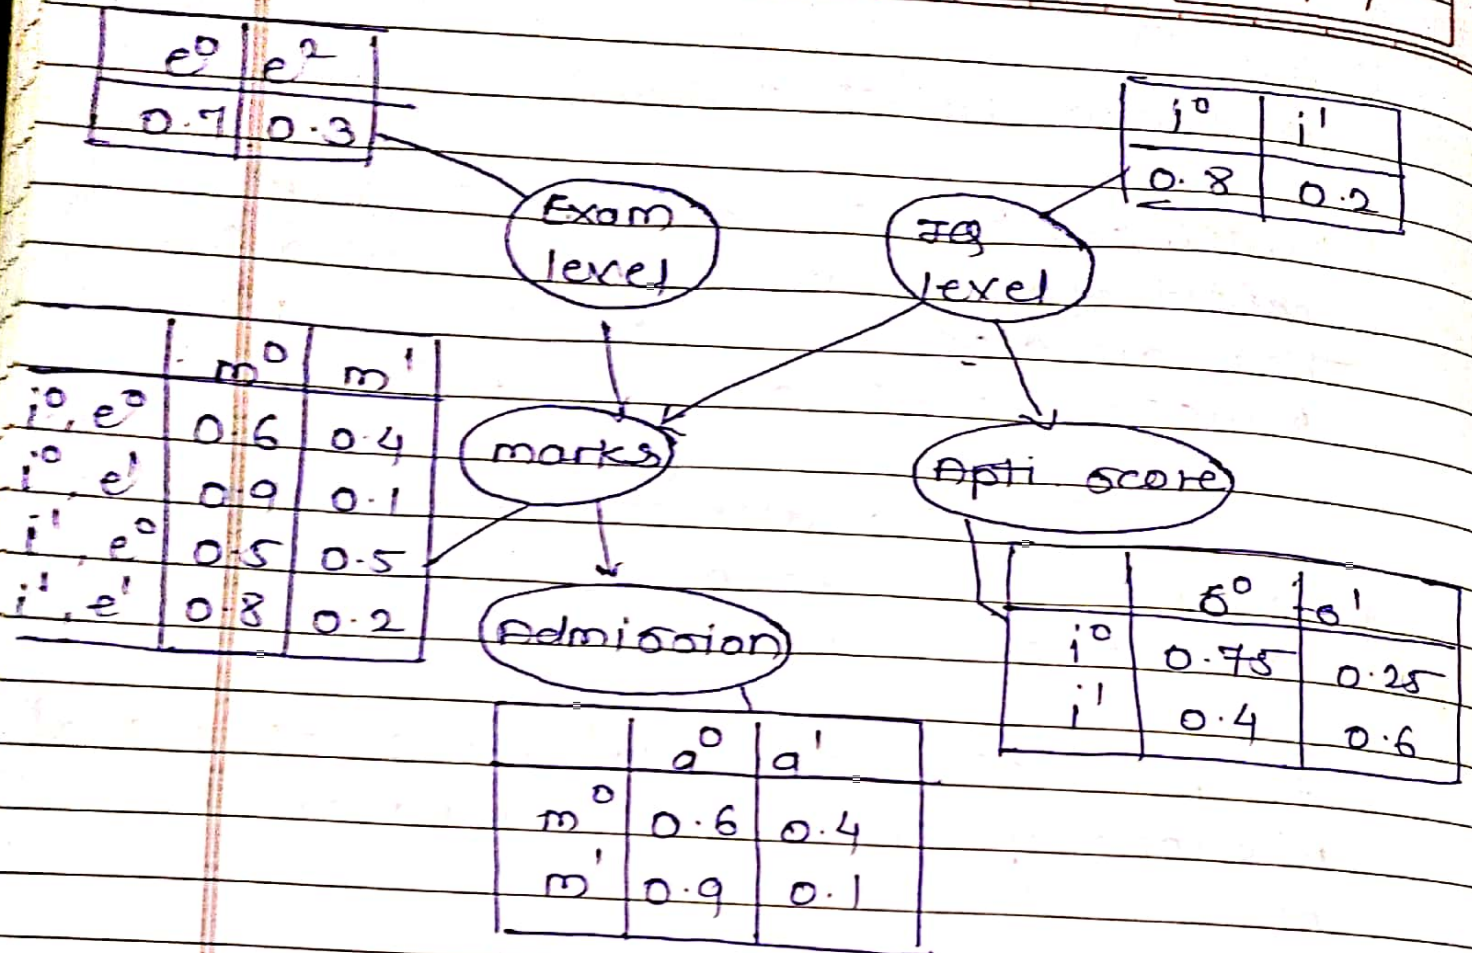 e⁰ e²
0.7 0.3
i⁰ i¹
0.8 0.2
Exam
level
IQ
level
m⁰ m¹
i⁰, e⁰ 0.6 0.4
i⁰, e¹ 0.9 0.1
i¹, e⁰ 0.5 0.5
i¹, e¹ 0.8 0.2
marks
Apti. score
Admission
s⁰ s¹
i⁰ 0.75 0.25
i¹ 0.4 0.6
a⁰ a¹
m⁰ 0.6 0.4
m¹ 0.9 0.1